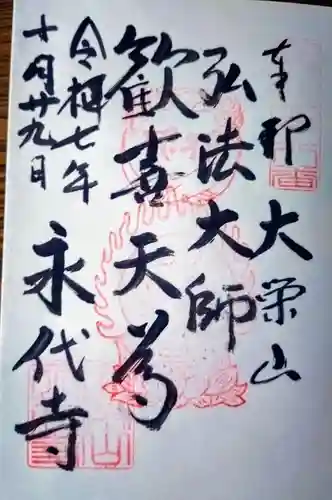 奉拝 大栄山
弘法大師
歓喜天
令和七年
十月廿九日
永代寺